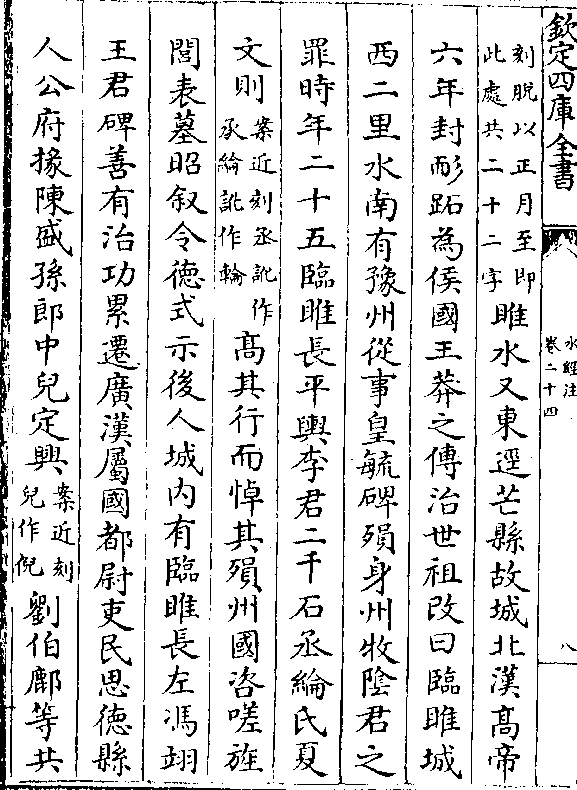 欽定四庫全書
水經注
卷二十四
八
刻脫以正月至即
此處共二十二字
睢水又東逕芒縣故城北漢髙帝
六年封耏跖為侯國王莽之傳治世祖改曰臨睢城
西二里水南有豫州從事皇毓碑殞身州牧隂君之
罪時年二十五臨睢長平輿李君二千石丞綸氏夏
文則
案近刻丞訛作
承綸訛作輪
髙其行而悼其殞州國咨嗟旌
閭表墓昭叙令徳式示後人城内有臨睢長左馮翊
王君碑善有治功累遷廣漢屬國都尉吏民思徳縣
人公府掾陳盛孫郎中兒定興
案近刻
兒作倪
劉伯鄜等共